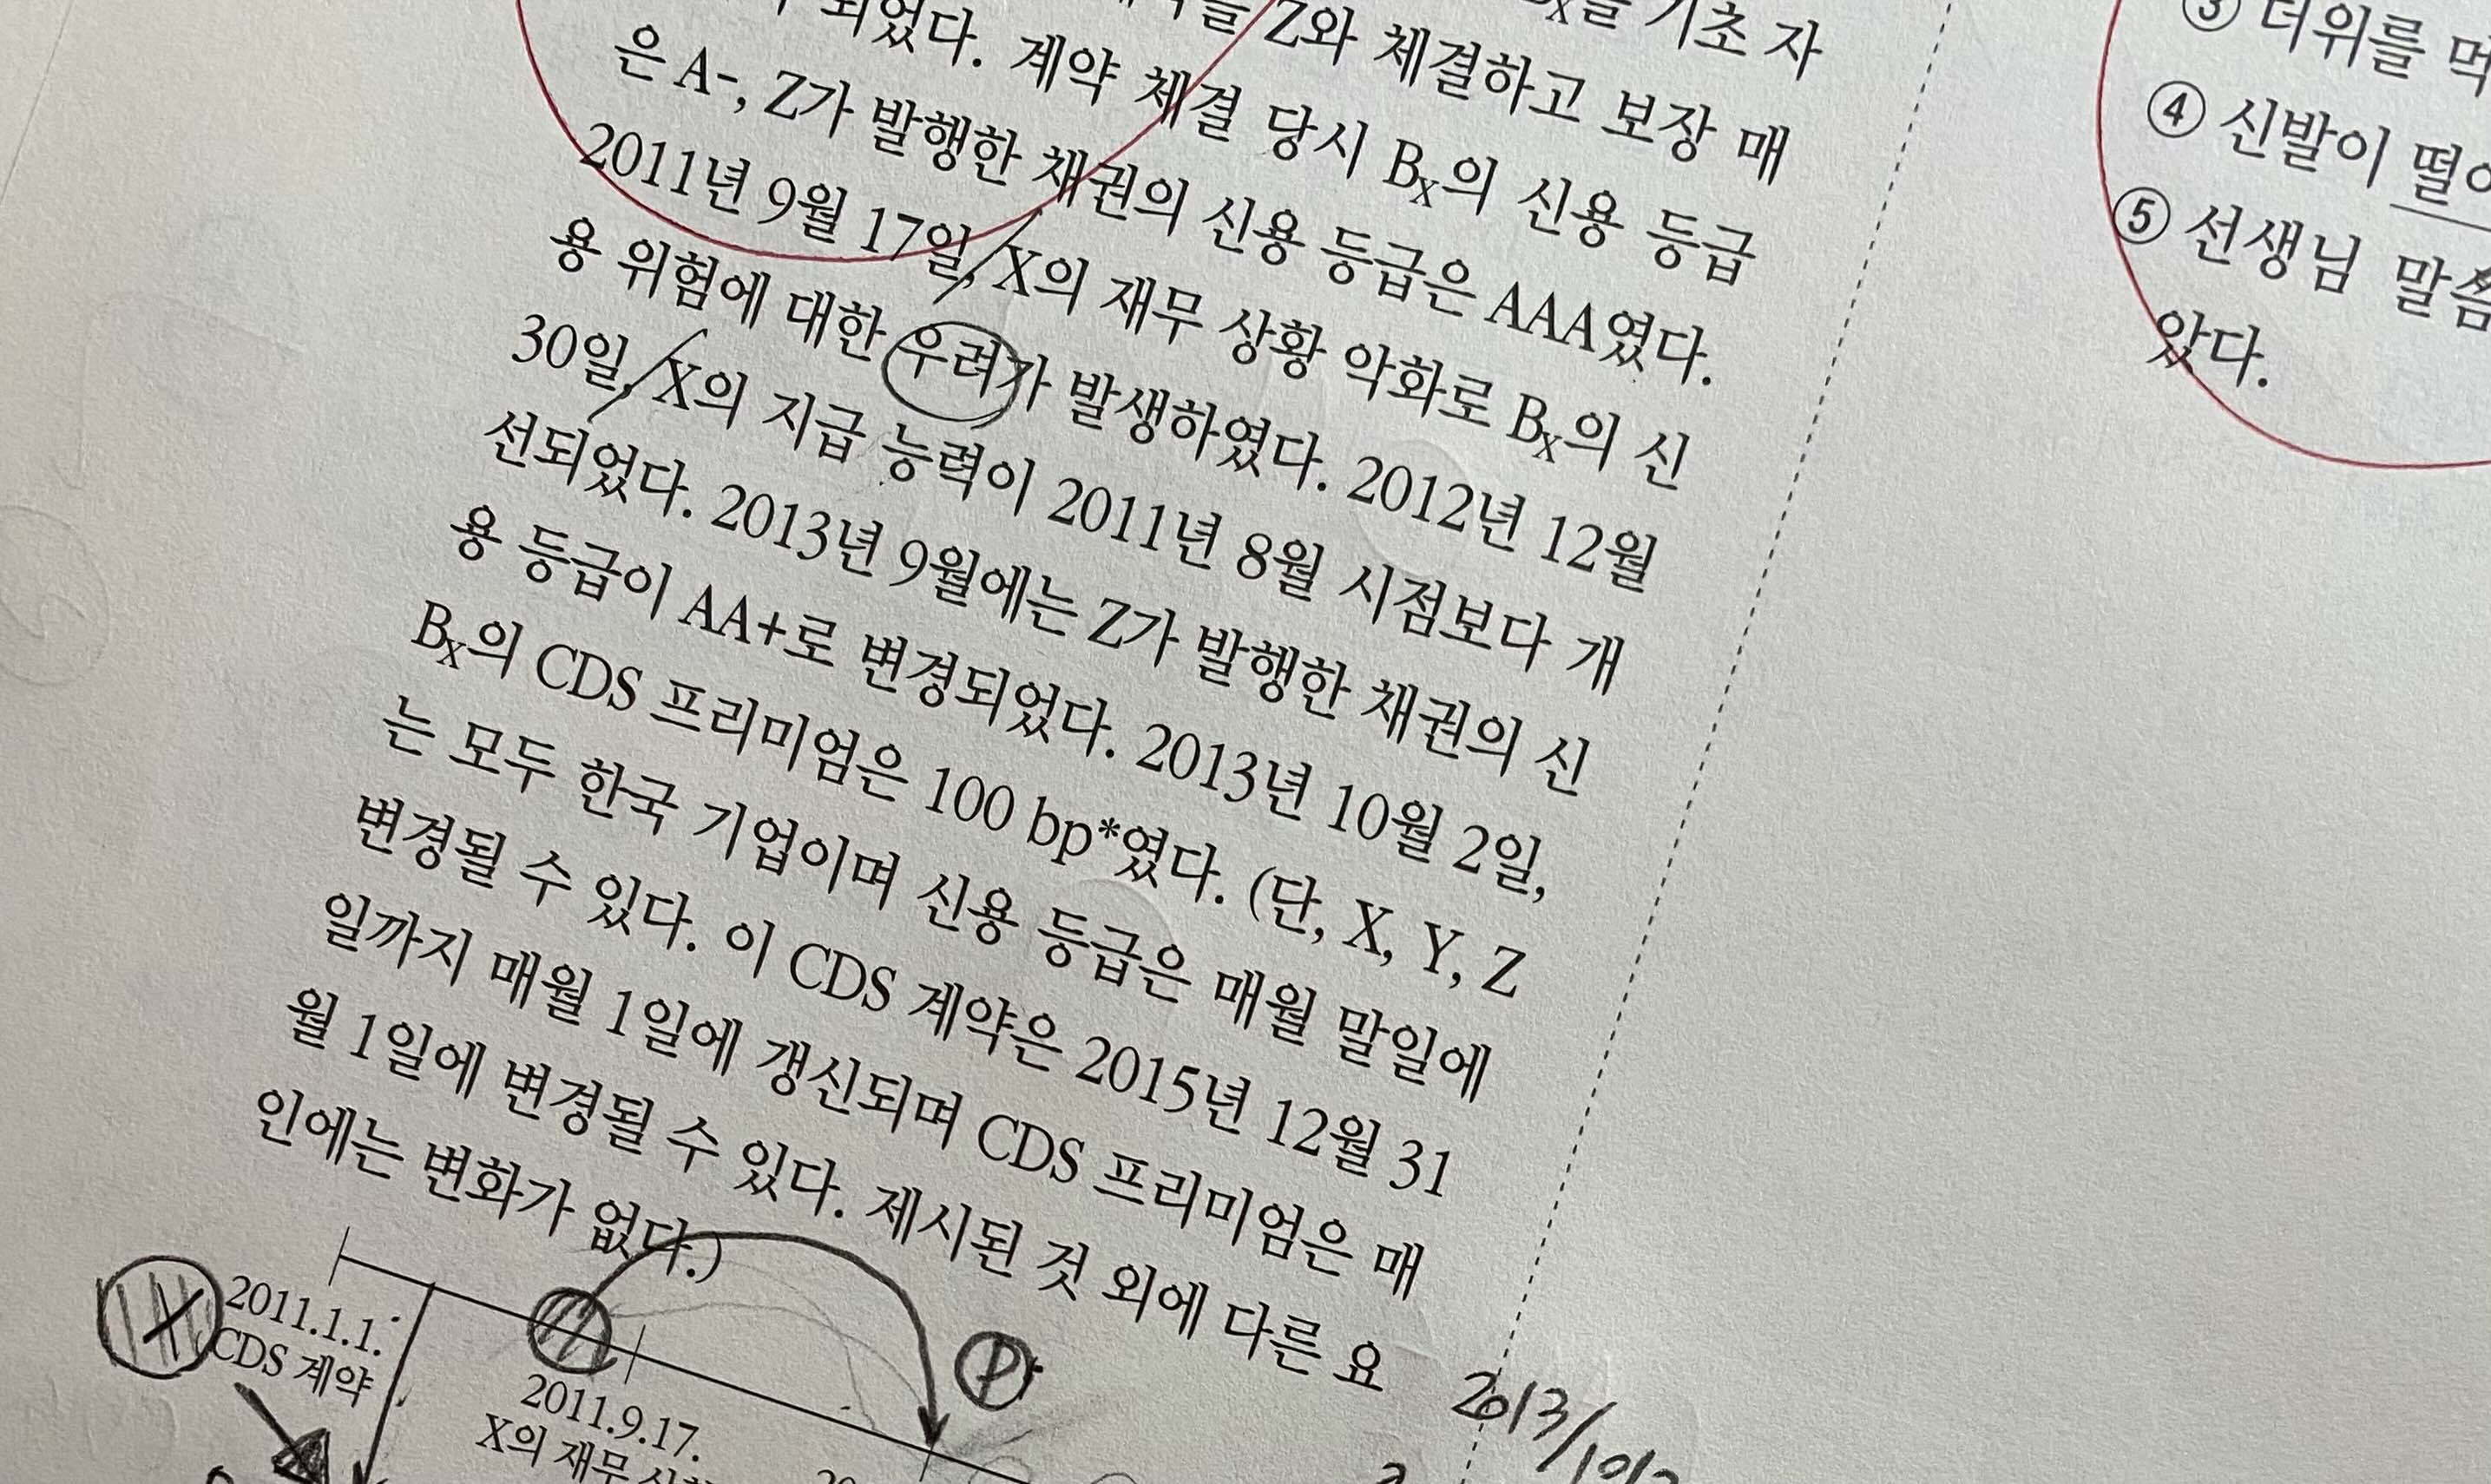 되었다.
을 Z와 체결하고 보장 매
기초 자
은 A-, Z가 발행한 채권의 신용 등급은 AAA였다.
계약 체결 당시 Bx의 신용 등급
2011년 9월 17일, X의 재무 상황 악화로 Bx의 신
용 위험에 대한 우려가 발생하였다. 2012년 12월
30일, X의 지급 능력이 2011년 8월 시점보다 개
선되었다. 2013년 9월에는 Z가 발행한 채권의 신
용 등급이 AA+로 변경되었다. 2013년 10월 2일,
Bx의 CDS 프리미엄은 100 bp*였다. (단, X, Y, Z
는 모두 한국 기업이며 신용 등급은 매월 말일에
변경될 수 있다. 이 CDS 계약은 2015년 12월 31
일까지 매월 1일에 갱신되며 CDS 프리미엄은 매
월 1일에 변경될 수 있다. 제시된 것 외에 다른 요
인에는 변화가 없다.)
X
2011.1.1.
CDS 계약
2011.9.17.
X의 재무
P
2013/10/2
③ 더위를 먹
④ 신발이 떨어
⑤ 선생님 말씀
았다.